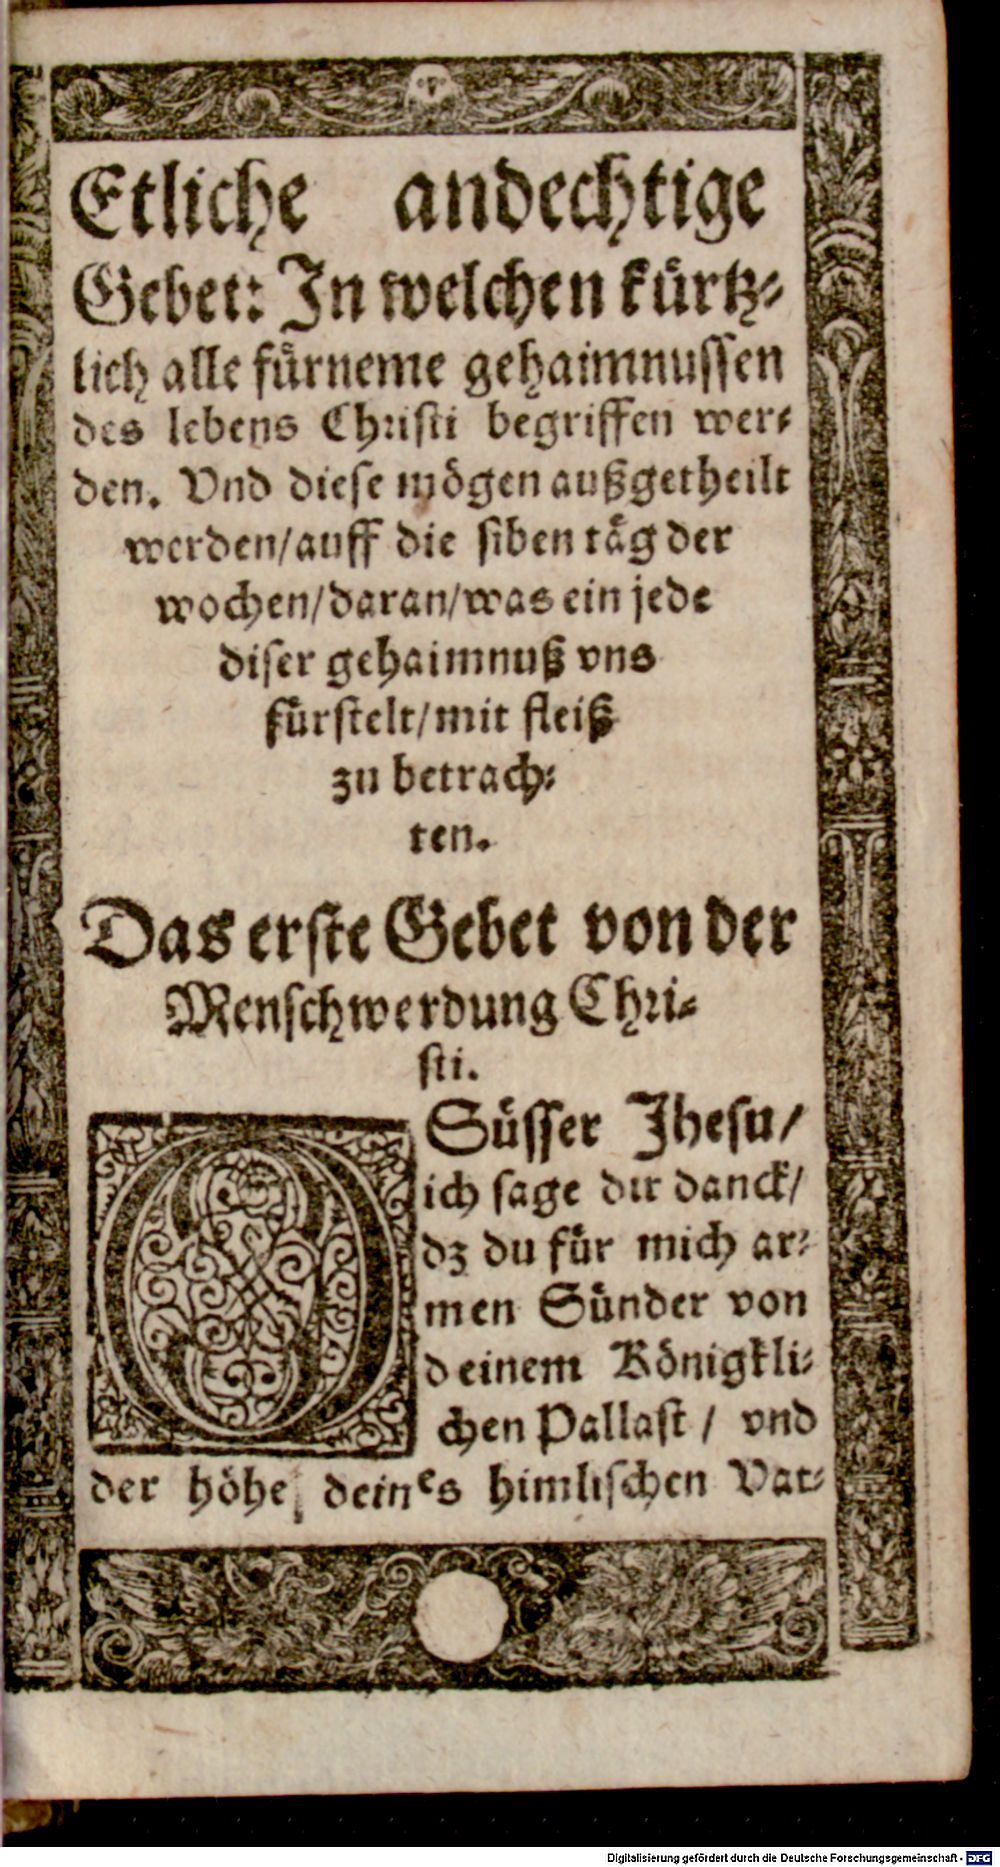 Etliche andechtige
Gebet: In welchen kürtz-
lich alle fürneme gehaimnussen
des lebens Christi begriffen wer-
den. Vnd diese mögen außgetheilt
werden/auff die siben täg der
wochen/daran/was ein jede
diser gehaimnuß vns
fürstelt/mit fleiß
zu betrach-
ten.
Das erste Gebet von der
Menschwerdung Chri-
sti.
O Süsser Jhesu/
ich sage dir danck/
dz du für mich ar-
men Sünder von
deinem Königkli-
chen Pallast / vnd
der höhe deines himlischen Vat-
Digitalisierung gefördert durch die Deutsche Forschungsgemeinschaft - DFG